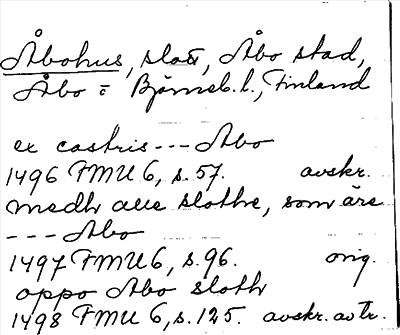 Åbohus, slott, Åbo stad,
Åbo o Björneb. l., Finland
ex castris --- Abo
1496 FMU 6, s. 57. avskr.
medh alle slothe, som äre
--- Abo
1497 FMU 6, s. 96. orig.
oppo Abo sloth
1498 FMU 6, s. 125. avskr. av tr.